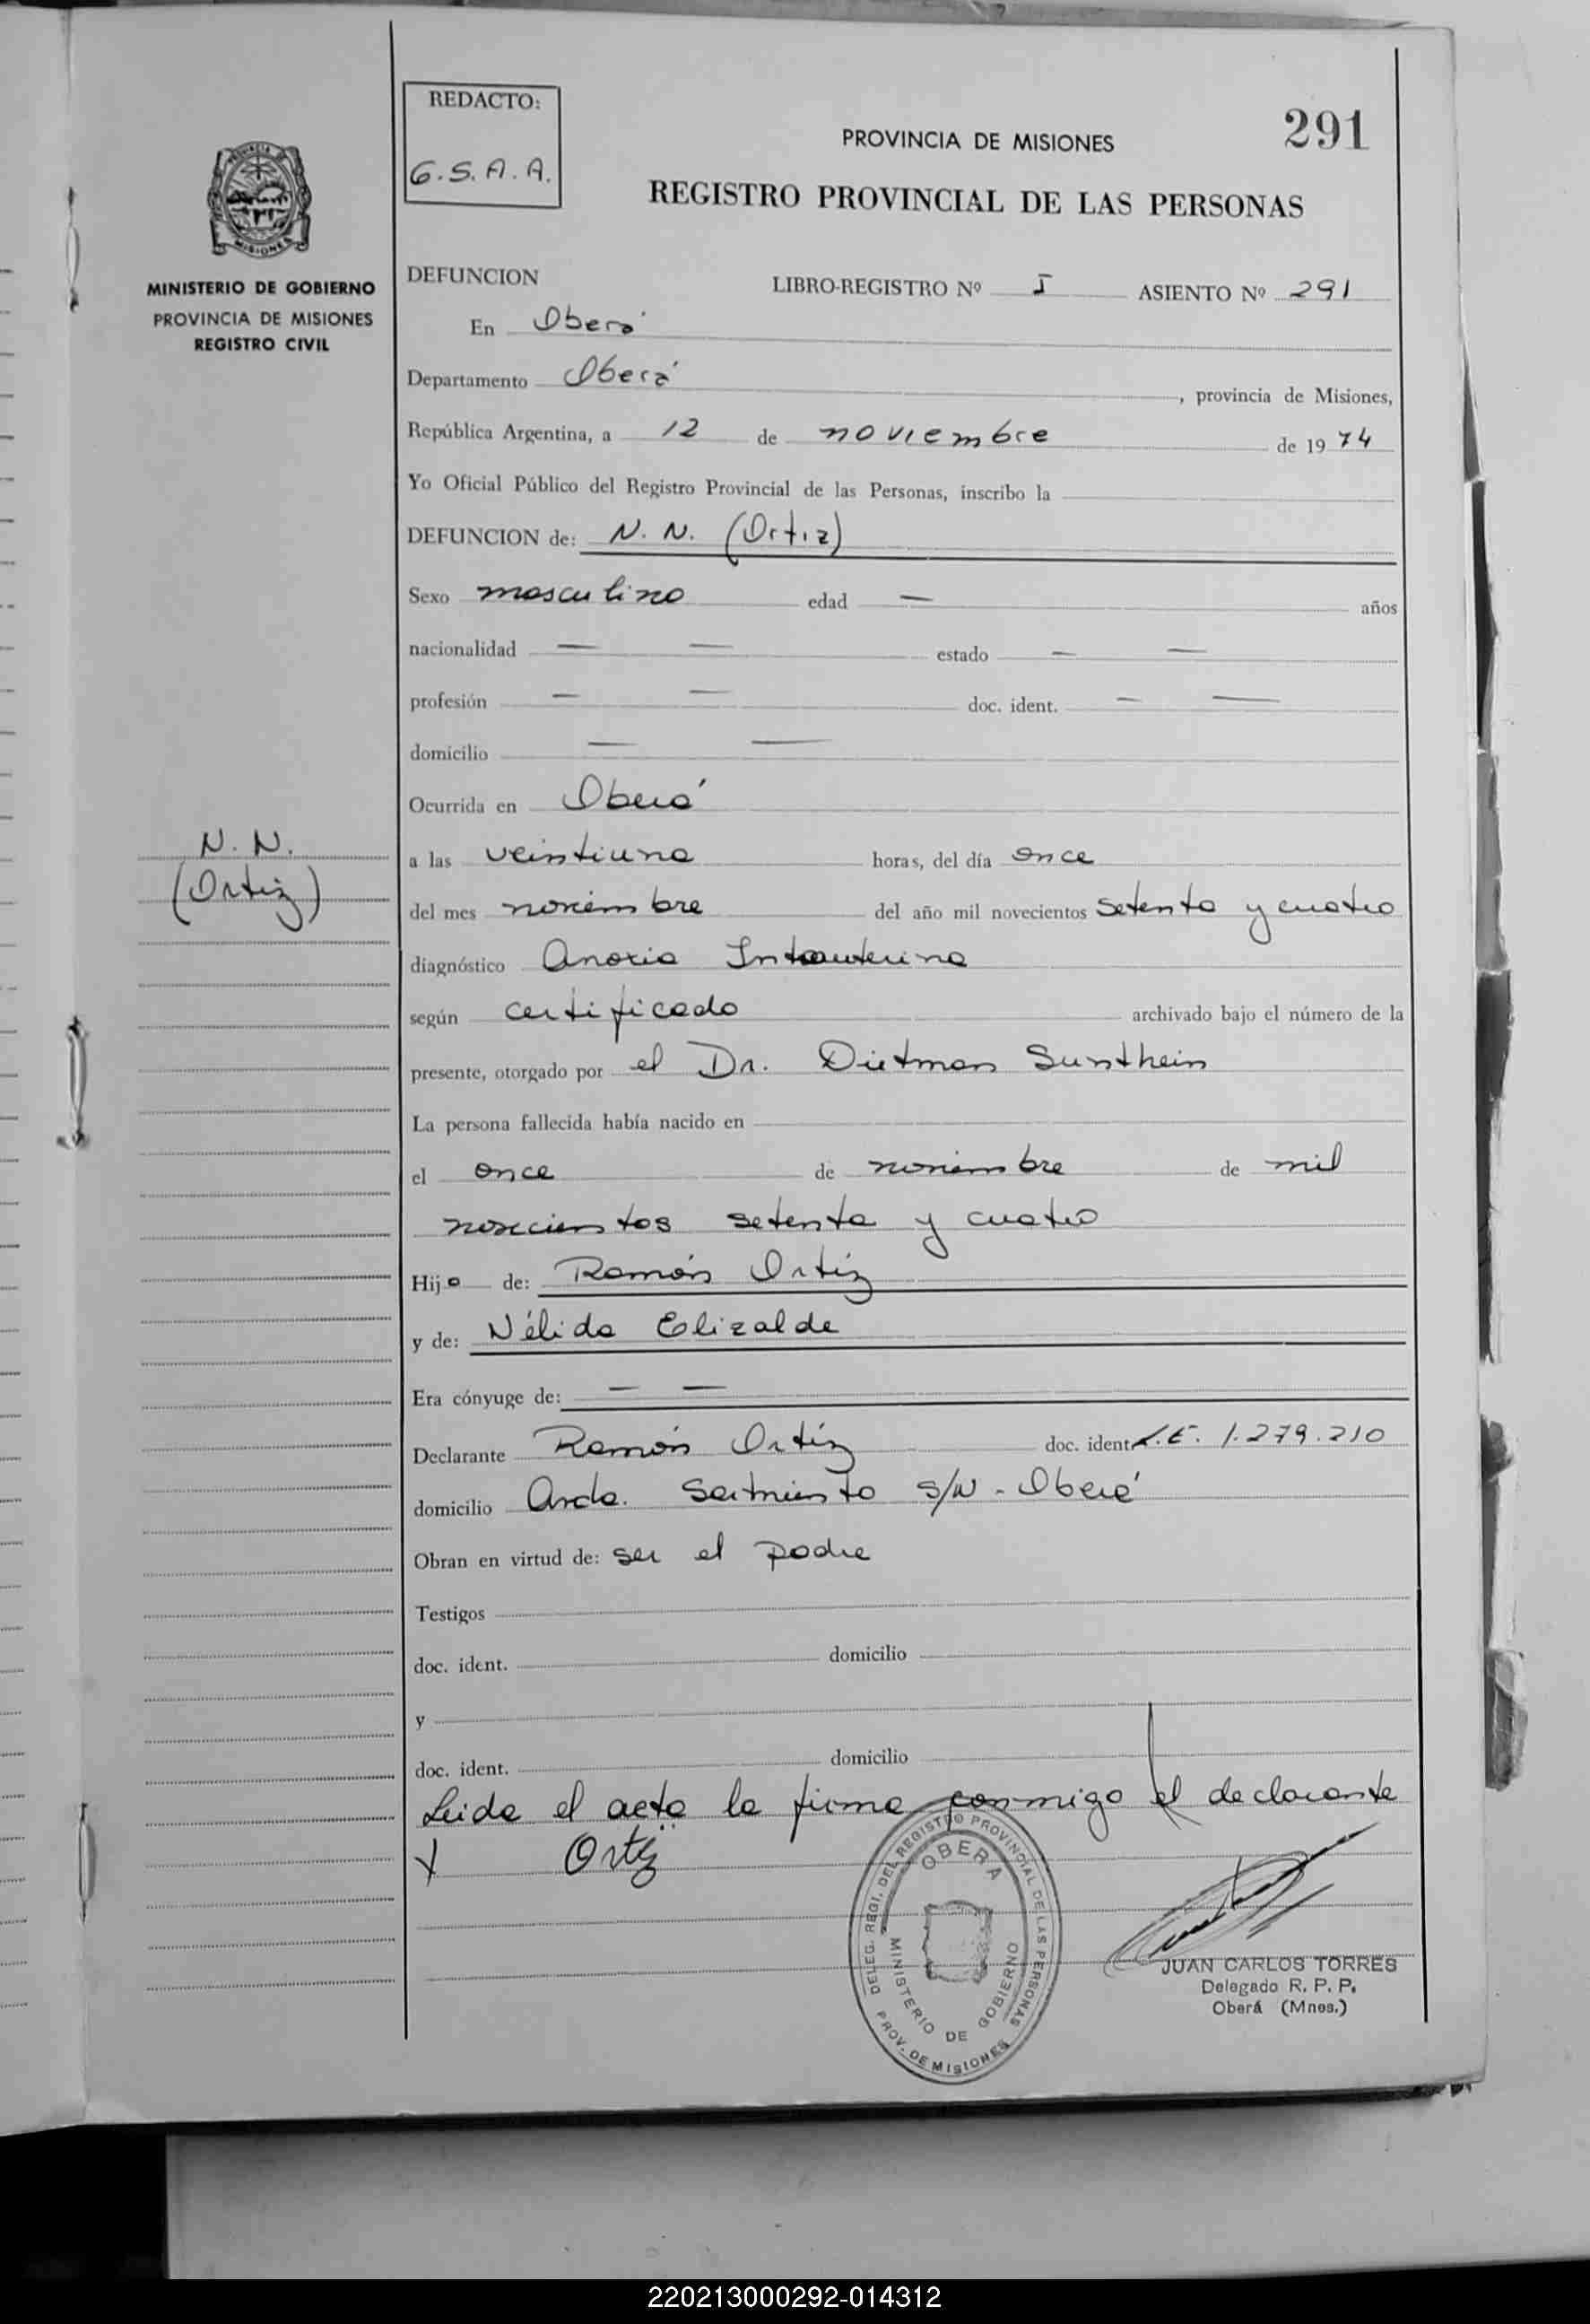 REDACTO:
G.S.A.A.
PROVINCIA DE MISIONES
291
REGISTRO PROVINCIAL DE LAS PERSONAS
MINISTERIO DE GOBIERNO
PROVINCIA DE MISIONES
REGISTRO CIVIL
DEFUNCION LIBRO-REGISTRO Nº I ASIENTO Nº 291
En Oberá
Departamento Oberá, provincia de Misiones,
República Argentina, a 12 de noviembre de 1974
Yo Oficial Público del Registro Provincial de las Personas, inscribo la
DEFUNCION de: N. N. (Ortiz)
Sexo masculino edad — años
nacionalidad — — estado — —
profesión — — doc. ident. — —
domicilio — —
Ocurrida en Oberá
N. N.
(Ortiz)
a las veintiuna horas, del día once
del mes noviembre del año mil novecientos setenta y cuatro
diagnóstico Anoxia Intrauterina
según certificado archivado bajo el número de la
presente, otorgado por el Dr. Dietmar Sunthein
La persona fallecida había nacido en
el once de noviembre de mil
novecientos setenta y cuatro
Hijo de: Ramón Ortiz
y de: Nélida Elizalde
Era cónyuge de: — —
Declarante Ramón Ortiz doc. ident. L.E. 1.279.210
domicilio Avda. Sarmiento s/N - Oberá
Obran en virtud de: ser el padre
Testigos
doc. ident. domicilio
y
doc. ident. domicilio
Leida el acta la firma conmigo el declarante
X Ortiz
DELEG. REGI. DEL REGISTRO PROVINCIAL DE LAS PERSONAS
OBERA
MINISTERIO DE GOBIERNO
PROV. DE MISIONES
JUAN CARLOS TORRES
Delegado R. P. P.
Oberá (Mnes.)
220213000292-014312